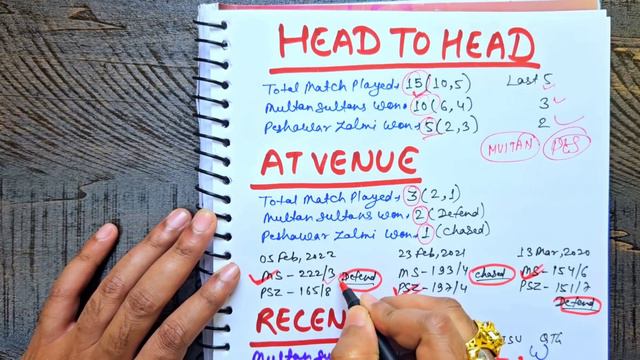 HEAD TO HEAD
Total Match Played, 15 (10,5) Last 5
Multan Sultans Won, 10 (6,4) 3
Peshawar Zalmi Won, 5 (2,3) 2
MULTAN PES
AT VENUE
Total Match Played, 3 (2,1)
Multan Sultans Won, 2 (Defend)
Peshawar Zalmi Won, 1 (Chased)
05 Feb, 2022 23 Feb, 2021 13 Mar, 2020
MS - 222/3 Defend MS - 193/4 chased MS - 154/6
PSZ - 165/8 PSZ - 197/4 PSZ - 151/7
Defend
RECEN
QTG
Multan